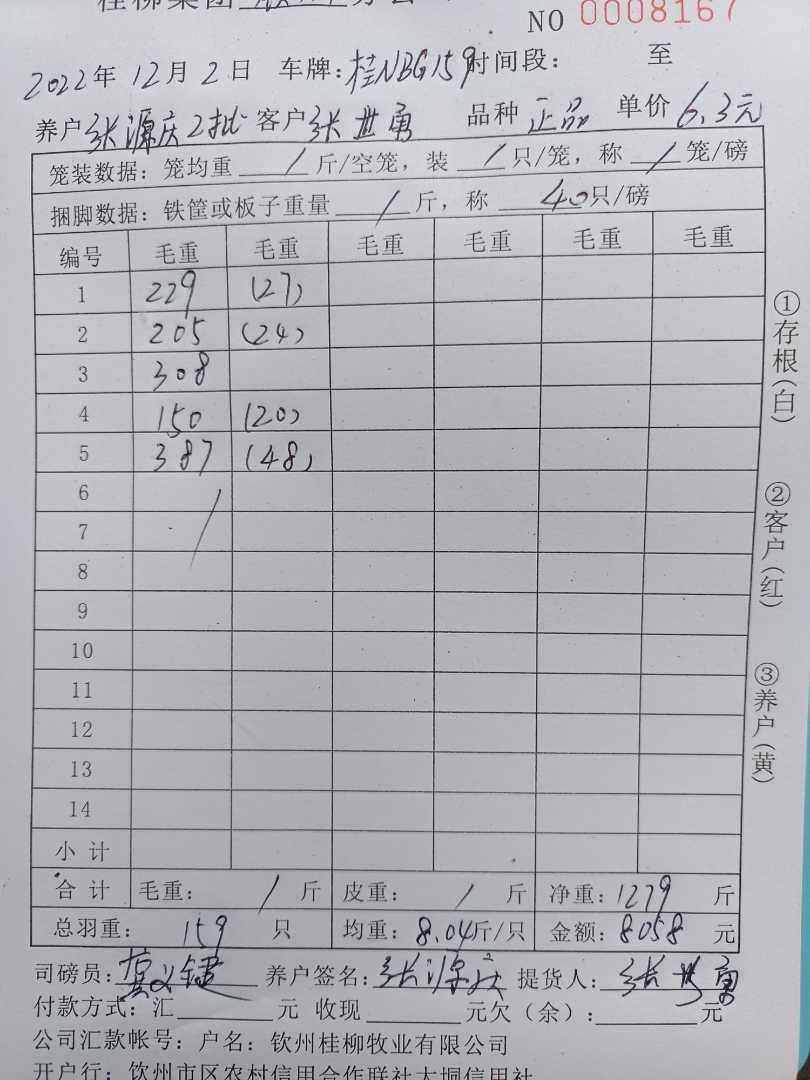 桂柳集团
NO 0008167
2022年12月2日 车牌:桂NBG159时间段: 至
养户张源庆2批 客户张世勇 品种正品 单价6.3元
笼装数据:笼均重 / 斤/空笼,装 / 只/笼,称 / 笼/磅
捆脚数据:铁筐或板子重量 / 斤,称 40只/磅
编号 毛重 毛重 毛重 毛重 毛重 毛重
1 229 (27)
2 205 (24)
3 308
4 150 (20)
5 387 (48)
6 /
7
8
9
10
11
12
13
14
小计
合计 毛重: / 斤 皮重: / 斤 净重:1279 斤
总羽重: 159 只 均重:8.04斤/只 金额:8058 元
司磅员: 养户签名:张源庆 提货人:张世勇
付款方式:汇 元 收现 元欠(余): 元
公司汇款帐号:户名:钦州桂柳牧业有限公司
开户行:钦州市区农村信用合作联社大垌信用社
①存根(白)
②客户(红)
③养户(黄)